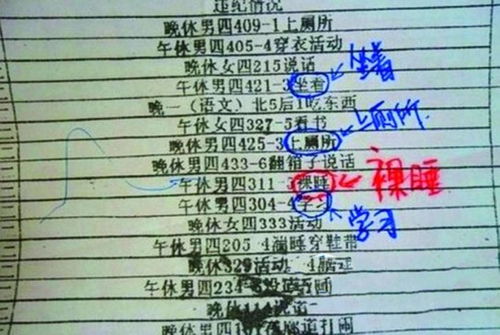 违纪情况
晚休男四409-1上厕所
午休男四405-4穿衣活动
晚休女四215说话
午休男四421-3坐着
坐着
晚一(语文)北5后1吃东西
午休女四327-5看书
上厕所
晚休男四425-3上厕所
晚休男四433-6翻箱子说话
午休男四311-3裸睡
裸睡
午休男四304-4学习
学习
晚休女四333活动
午休男四205-4端睡穿鞋带
晚休329活动
午休男四234
晚休
晚休男四 打闹